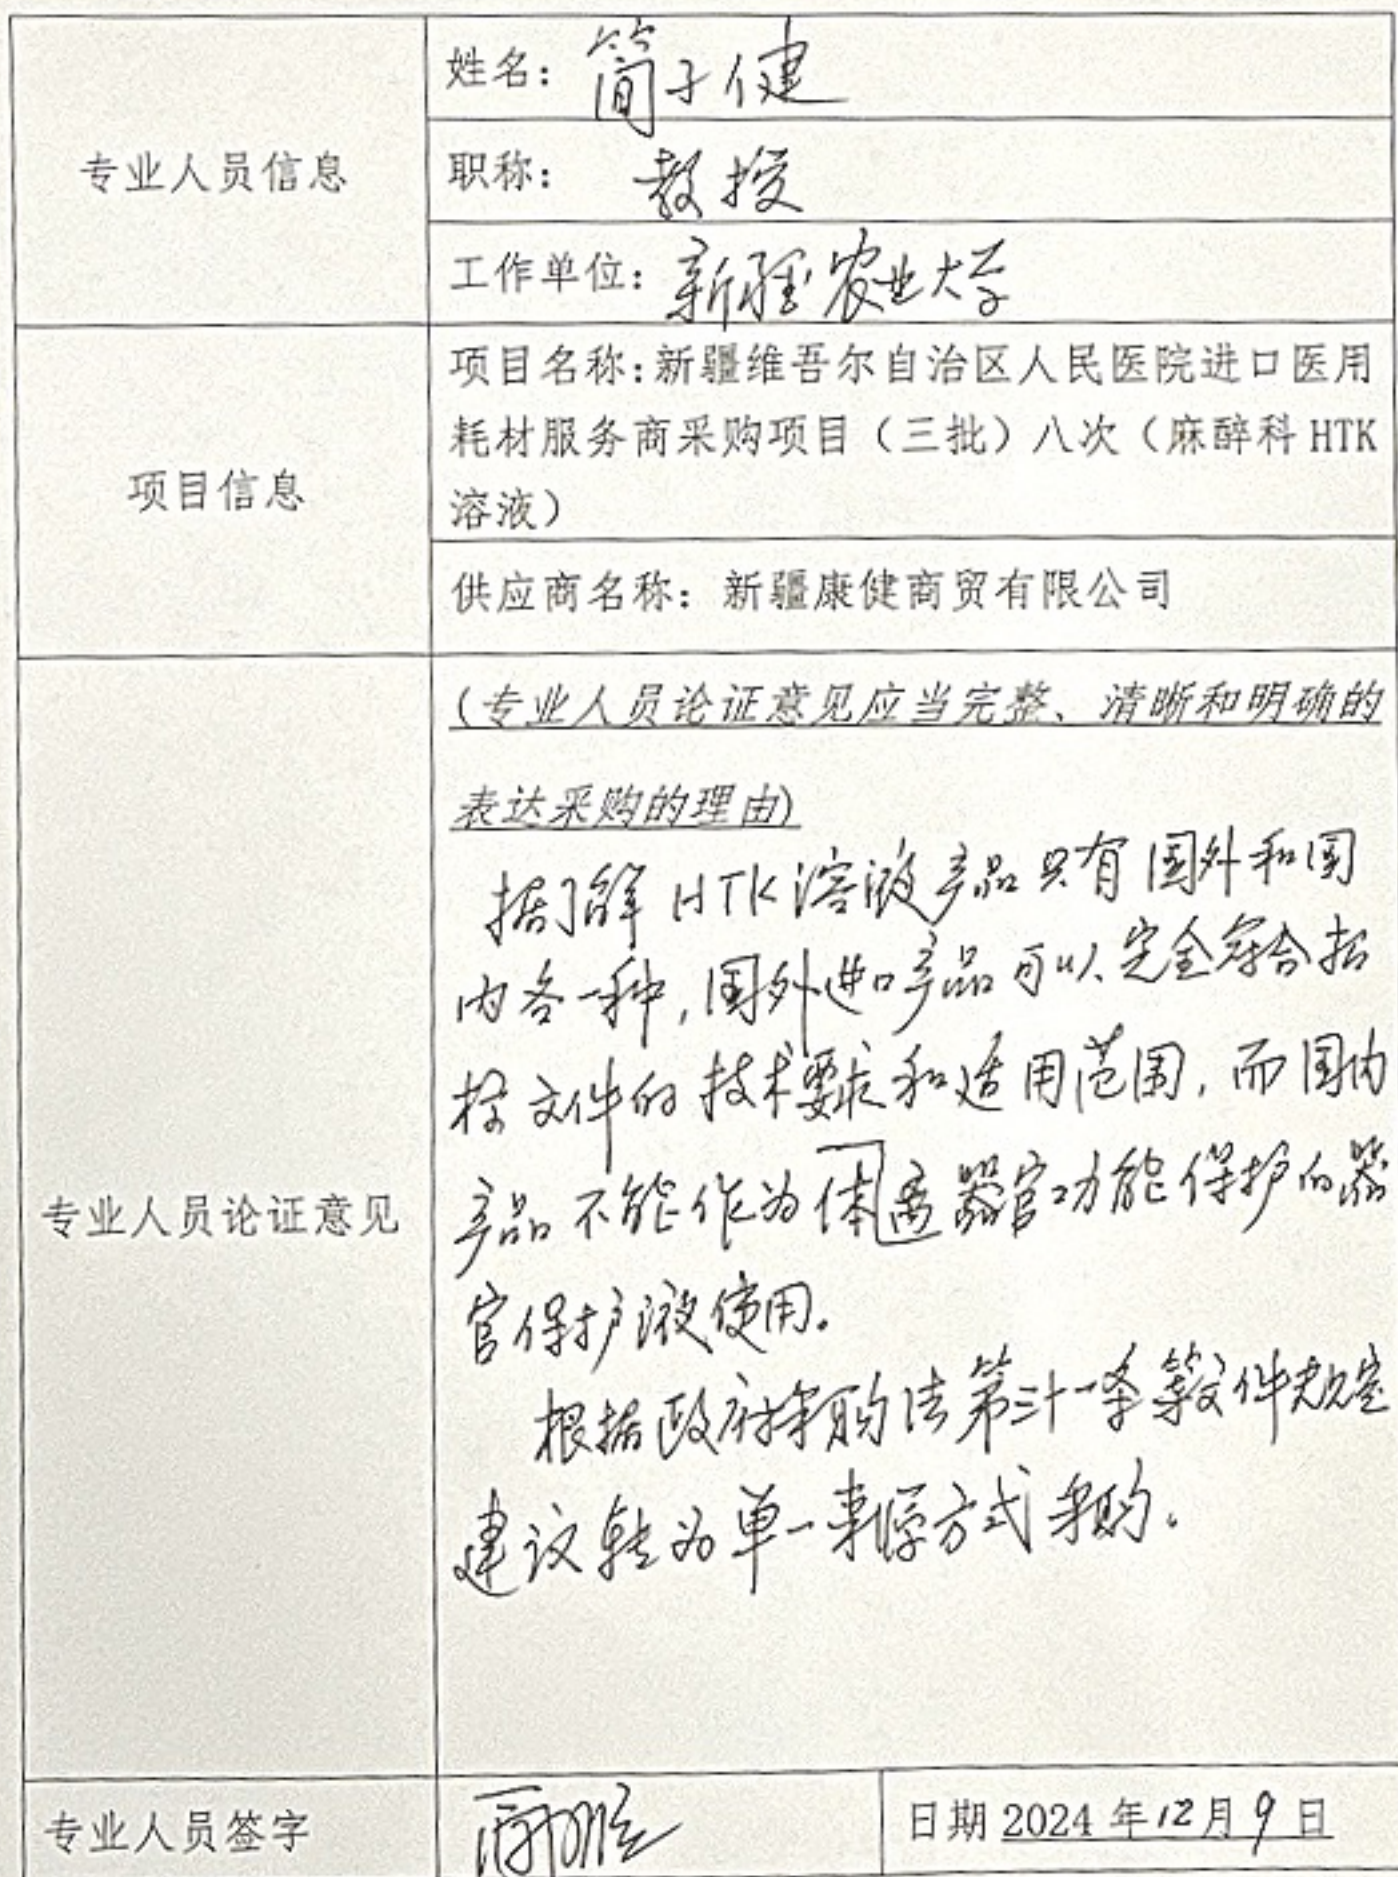 专业人员信息
姓名：简子健
职称：教授
工作单位：新疆农业大学
项目信息
项目名称：新疆维吾尔自治区人民医院进口医用
耗材服务商采购项目（三批）八次（麻醉科 HTK
溶液）
供应商名称：新疆康健商贸有限公司
专业人员论证意见
（专业人员论证意见应当完整、清晰和明确的
表达采购的理由）
据了解 HTK溶液产品只有国外和国
内各一种，国外进口产品可以完全符合招
标文件的技术要求和适用范围，而国内
产品不能作为体 器官功能保护的器
官保护液使用。
根据政府采购法第三十一条等文件规定
建议转为单一来源方式采购。
专业人员签字
日期 2024 年12月9日